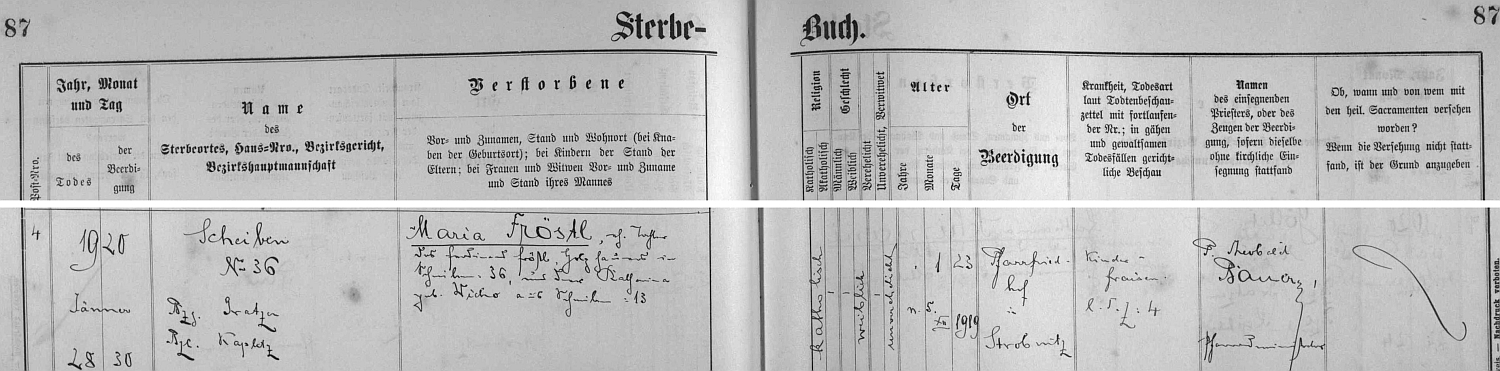 87
Sterbe-
Buch.
87
Post-Nro.
Jahr, Monat
und Tag
des
Todes
der
Beerdi-
gung
Name
des
Sterbeortes, Haus-Nro., Bezirksgericht,
Bezirkshauptmannschaft
Verstorbene
Vor- und Zunamen, Stand und Wohnort (bei Kna-
ben der Geburtsort); bei Kindern der Stand der
Eltern; bei Frauen und Witwen Vor- und Zuname
und Stand ihres Mannes
Religion
Katholisch
Akatholisch
Geschlecht
Männlich
Weiblich
Verehelicht
Unverehelicht, Verwitwet
Alter
Jahre
Monate
Tage
Ort
der
Beerdigung
Krankheit, Todesart
laut Todtenbeschau-
zettel mit fortlaufen-
der Nr.; in gähen
und gewaltsamen
Todesfällen gericht-
liche Beschau
Namen
des einsegnenden
Priesters, oder des
Zeugen der Beerdi-
gung, sofern dieselbe
ohne kirchliche Ein-
segnung stattfand
Ob, wann und von wem mit
den heil. Sacramenten versehen
worden?
Wenn die Versehung nicht statt-
fand, ist der Grund anzugeben
4
1920
Jänner
28 30
Scheiben
No 36
Bzg. Gratzen
Bzl. Kaplitz
Maria Fröstl, eh. Tochter
des Ferdinand Fröstl, Holzhauers in
Scheiben 36, und der Katharina
geb. aus Scheiben 13
katholisch
weiblich
unverehelicht
1 23
n. 5.
XII 1919
Pfarrfried-
hof
in
Strobnitz
Kinder-
fraisen
: 4
P.
Bauer,
Pfarradministrator
Nachdruck verboten.